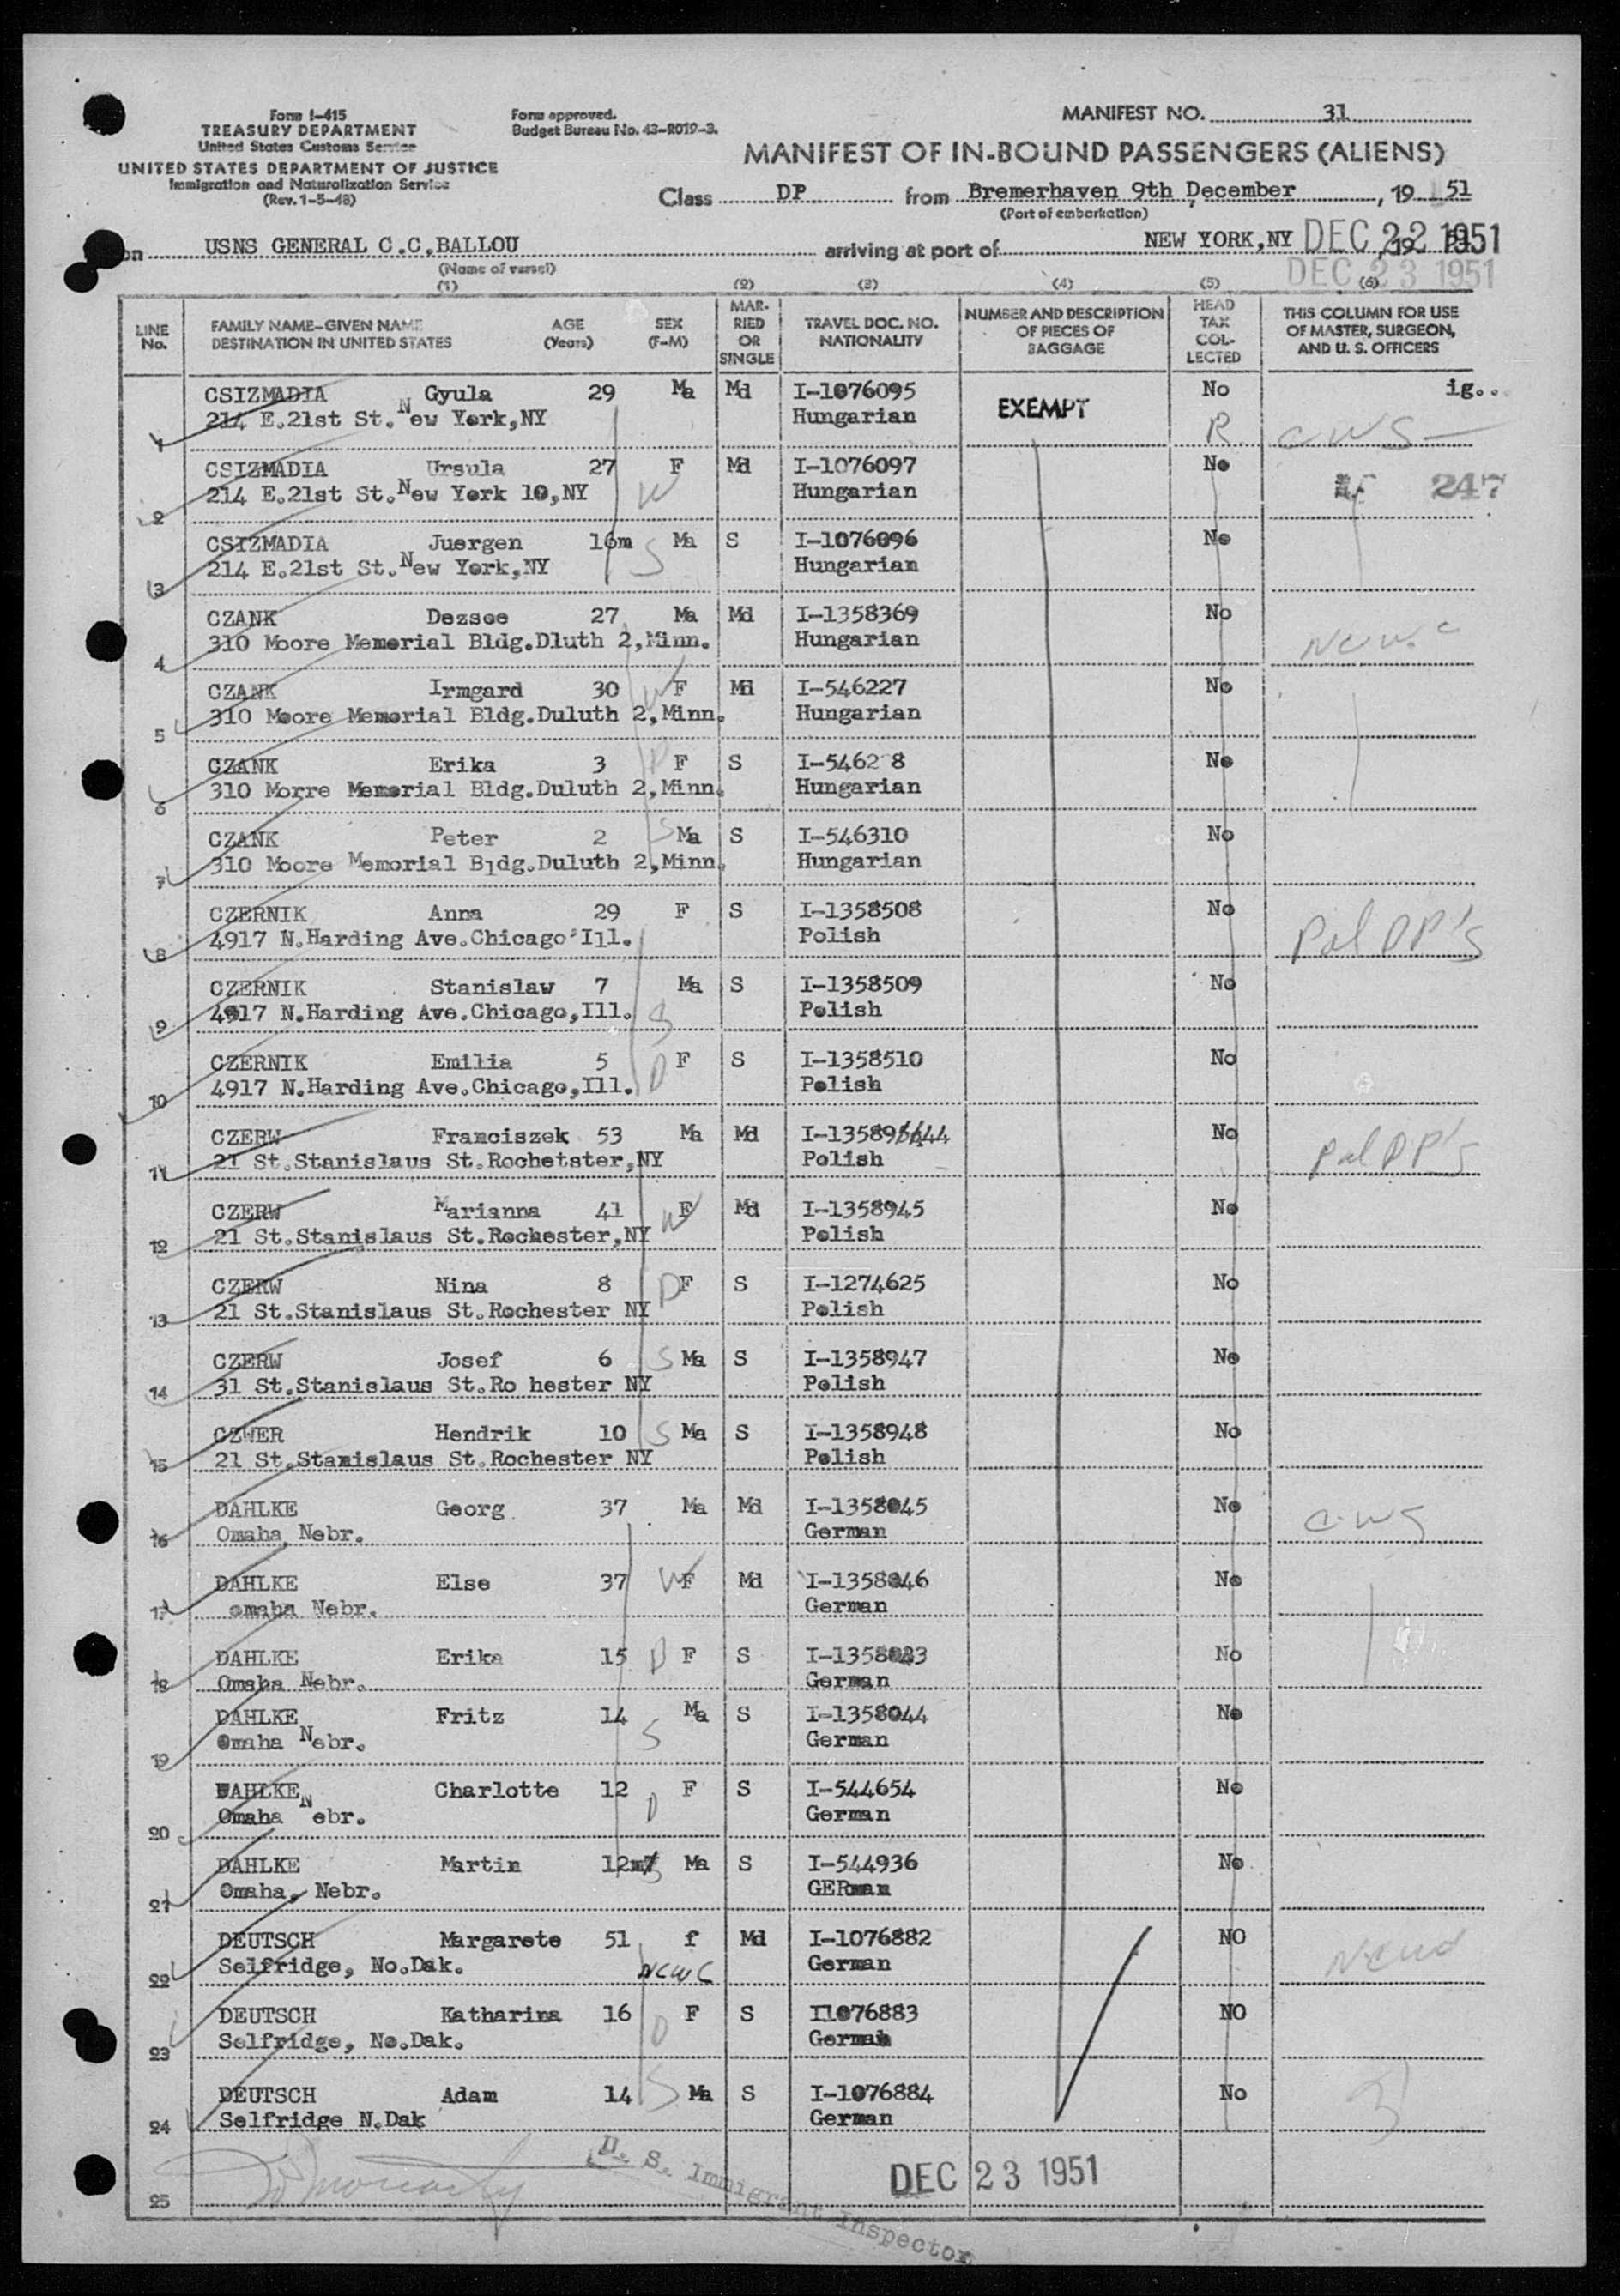 Form I-415
TREASURY DEPARTMENT
United States Customs Service
UNITED STATES DEPARTMENT OF JUSTICE
Immigration and Naturalization Service
(Rev. 1-5-48)
Form approved.
Budget Bureau No. 43-R019-3.
MANIFEST NO. 31
MANIFEST OF IN-BOUND PASSENGERS (ALIENS)
Class DP from Bremerhaven 9th December, 19 51
(Port of embarkation)
on USNS GENERAL C.C.BALLOU arriving at port of NEW YORK,NY DEC 22 1951
(Name of vessel)
DEC 23 1951
(1) (2) (3) (4) (5) (6)
LINE No. FAMILY NAME-GIVEN NAME DESTINATION IN UNITED STATES AGE (Years) SEX (F-M) MARRIED OR SINGLE TRAVEL DOC. NO. NATIONALITY NUMBER AND DESCRIPTION OF PIECES OF BAGGAGE HEAD TAX COLLECTED THIS COLUMN FOR USE OF MASTER, SURGEON, AND U. S. OFFICERS
CSIZMADIA Gyula 29 Ma Md I-1076095 EXEMPT No ig..
1 214 E.21st St.New York,NY Hungarian R CWS
CSIZMADIA Ursula 27 F Md I-1076097 No 247
2 214 E.21st St.New York 10,NY W Hungarian
CSIZMADIA Juergen 16m Ma S I-1076096 No
3 214 E.21st St.New York,NY S Hungarian
CZANK Dezsoe 27 Ma Md I-1358369 No
4 310 Moore Memorial Bldg.Dluth 2,Minn. Hungarian NCWC
CZANK Irmgard 30 W F Md I-546227 No
5 310 Moore Memorial Bldg.Duluth 2,Minn. Hungarian
CZANK Erika 3 D F S I-5462 8 No
6 310 Morre Memorial Bldg.Duluth 2,Minn. Hungarian
CZANK Peter 2 S Ma S I-546310 No
7 310 Moore Memorial Bldg.Duluth 2,Minn. Hungarian
CZERNIK Anna 29 F S I-1358508 No
8 4917 N.Harding Ave.Chicago'Ill. Polish Pol DP's
CZERNIK Stanislaw 7 Ma S I-1358509 No
9 4917 N.Harding Ave.Chicago,Ill. S Polish
CZERNIK Emilia 5 D F S I-1358510 No
10 4917 N.Harding Ave.Chicago,Ill. Polish
CZERW Franciszek 53 Ma Md No
11 21 St.Stanislaus St.Rochetster,NY Polish Pol DP's
CZERW Marianna 41 W F Md I-1358945 No
12 21 St.Stanislaus St.Rochester,NY Polish
CZERW Nina 8 D F S I-1274625 No
13 21 St.Stanislaus St.Rochester NY Polish
CZERW Josef 6 S Ma S I-1358947 No
14 31 St.Stanislaus St.Ro hester NY Polish
CZWER Hendrik 10 S Ma S I-1358948 No
15 21 St.Stanislaus St.Rochester NY Polish
DAHLKE Georg 37 Ma Md I-1358045 No
16 Omaha Nebr. German CWS
DAHLKE Else 37 W F Md I-1358046 No
17 omaha Nebr. German
DAHLKE Erika 15 D F S No
18 Omaha Nebr. German
DAHLKE Fritz 14 S Ma S I-1358044 No
19 Omaha Nebr. German
DAHLKE Charlotte 12 D F S I-544654 No
20 Omaha Nebr. German
DAHLKE Martin Ma S I-544936 No
21 Omaha, Nebr. GERman
DEUTSCH Margarete 51 f Md I-1076882 NO
22 Selfridge, No.Dak. NCWC German
DEUTSCH Katharina 16 D F S I1076883 NO
23 Selfridge, No.Dak. German
DEUTSCH Adam 14 S Ma S I-1076884 No
24 Selfridge N.Dak German 3
25
U. S. Immigrant Inspector
DEC 23 1951